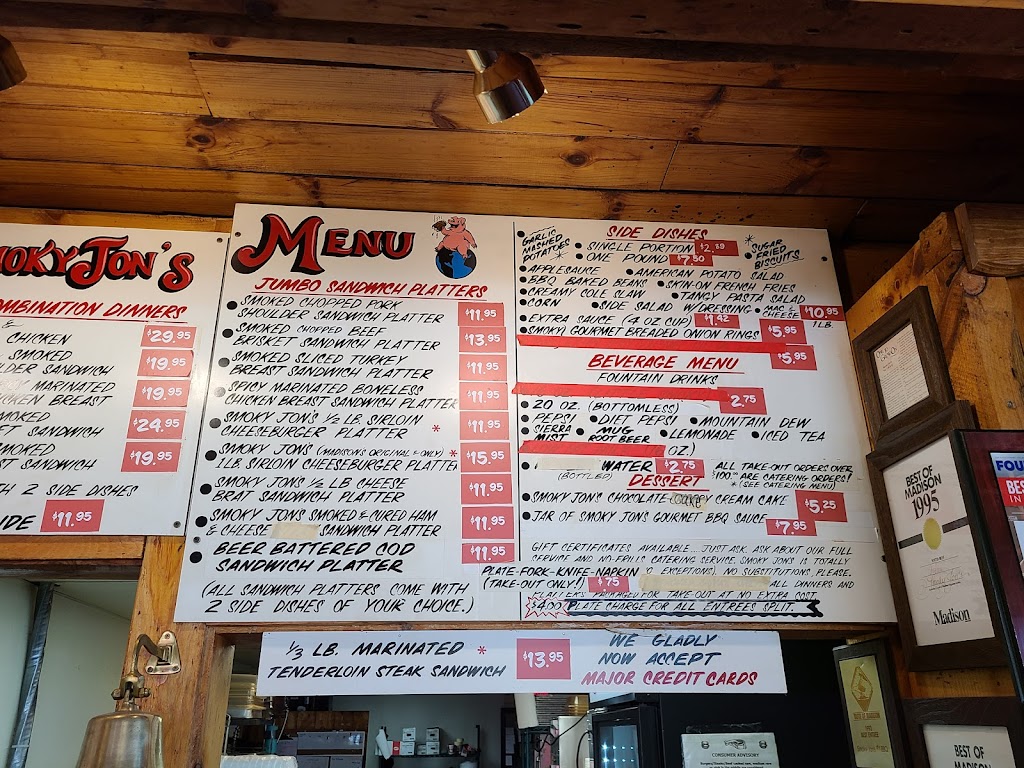 MOKY JON'S
COMBINATION DINNERS
&
CHICKEN $29.95
SMOKED
LDER SANDWICH $19.95
MARINATED
CKEN BREAST $19.95
MOKED
SANDWICH $24.95
SMOKED
ST SANDWICH $19.95
TH 2 SIDE DISHES
IDE $11.95
MENU
JUMBO SANDWICH PLATTERS
SMOKED CHOPPED PORK
SHOULDER SANDWICH PLATTER $11.95
SMOKED CHOPPED BEEF
BRISKET SANDWICH PLATTER $13.95
SMOKED SLICED TURKEY
BREAST SANDWICH PLATTER $11.95
SPICY MARINATED BONELESS
CHICKEN BREAST SANDWICH PLATTER $11.95
SMOKY JON'S 1/2 LB. SIRLOIN
CHEESEBURGER PLATTER * $11.95
SMOKY JON'S (MADISON'S ORIGINAL & ONLY) *
1 LB. SIRLOIN CHEESEBURGER PLATTER $15.95
SMOKY JON'S 1/2 LB CHEESE
BRAT SANDWICH PLATTER $11.95
SMOKY JON'S SMOKED & CURED HAM
& CHEESE SANDWICH PLATTER $11.95
BEER BATTERED COD
SANDWICH PLATTER $11.95
(ALL SANDWICH PLATTERS COME WITH
2 SIDE DISHES OF YOUR CHOICE.)
SIDE DISHES
* GARLIC MASHED POTATOES *
SINGLE PORTION $2.89
ONE POUND $7.50
* SUGAR FRIED BISCUITS *
APPLESAUCE AMERICAN POTATO SALAD
BBQ BAKED BEANS SKIN-ON FRENCH FRIES
CREAMY COLE SLAW TANGY PASTA SALAD
CORN SIDE SALAD W/DRESSING CHEESE $10.95 1 LB.
EXTRA SAUCE (4 OZ CUP) $1.42
SMOKY GOURMET BREADED ONION RINGS $5.95
$5.95
BEVERAGE MENU
FOUNTAIN DRINKS
2.75
20 OZ. (BOTTOMLESS)
PEPSI DIET PEPSI MOUNTAIN DEW
SIERRA MIST MUG ROOT BEER LEMONADE ICED TEA
OZ.)
WATER $2.75
(BOTTLED)
ALL TAKE-OUT ORDERS OVER
$100.00 ARE CATERING ORDERS!
* (SEE CATERING MENU)
DESSERT
SMOKY JON'S CHOCOLATE COOKEY CREAM CAKE $5.25
JAR OF SMOKY JON'S GOURMET BBQ SAUCE $7.95
GIFT CERTIFICATES AVAILABLE....JUST ASK. ASK ABOUT OUR FULL
SERVICE AND NO-FRILLS CATERING SERVICE. SMOKY JON'S IS TOTALLY
PLATE-FORK-KNIFE-NAPKIN EXCEPTIONS). NO SUBSTITUTIONS, PLEASE.
(TAKE-OUT ONLY!) $.75 ALL DINNERS AND
PLATTERS PACKAGED FOR TAKE OUT AT NO EXTRA COST.
$4.00 PLATE CHARGE FOR ALL ENTREES SPLIT.
1/3 LB. MARINATED *
TENDERLOIN STEAK SANDWICH $13.95
WE GLADLY
NOW ACCEPT
MAJOR CREDIT CARDS
BEST OF
MADISON
1995
Madison
FOU
BES
IN
CONSUMER ADVISORY
BEST OF
MADISON